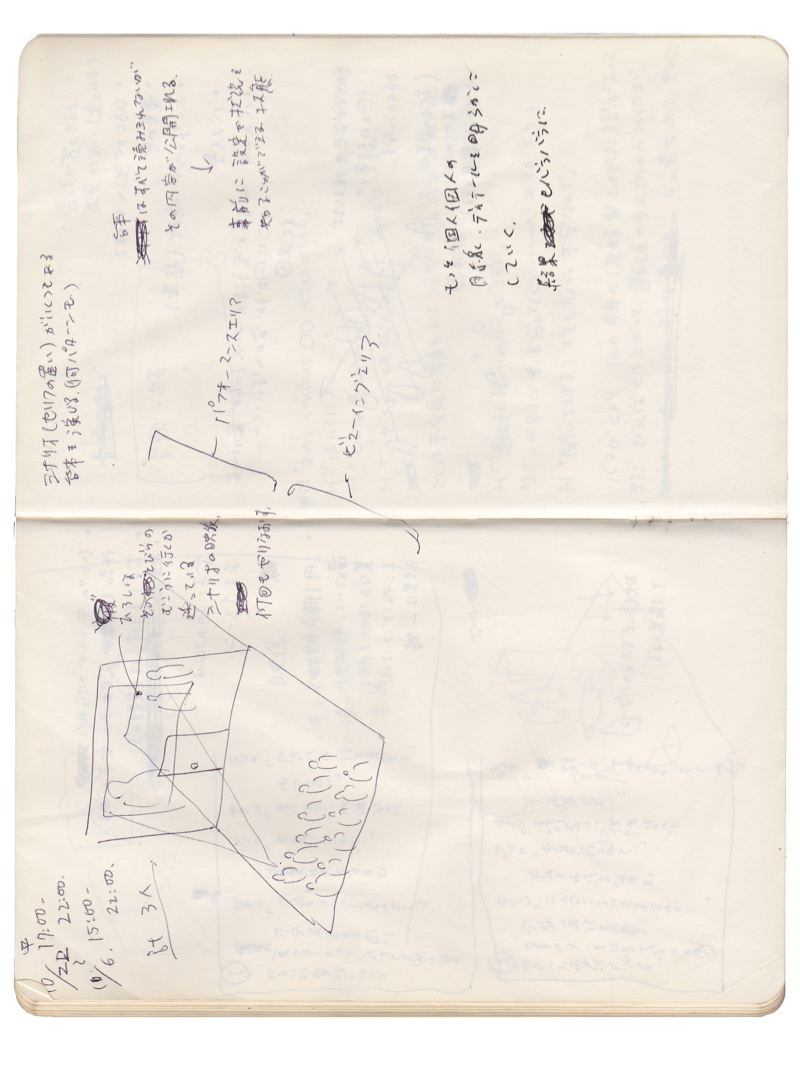 10/2日 17:00-
22:00.
10/6. 15:00-
22:00.
計 3人
シナリオ(セリフの違い)がいくつもある
台本を演じる.(何パターンも)
台本
はすべて読みきれないが
その内容が公開される.
↓
事前に 設定や状況を
知ることができる 状態
パフォーマンスエリア
ビューイングエリア
むこうに行くか
迷っている
シナリオの映像.
何回もやりなおす.
もっと個人個人の
関係・ディテールを明らかに
していく.
結果 もバラバラに.